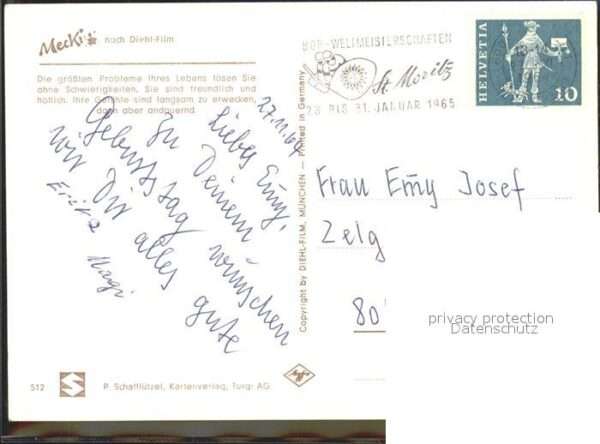 Mecki nach Diehl-Film
Die größten Probleme Ihres Lebens lösen Sie
ohne Schwierigkeiten, Sie sind freundlich und
höflich. Ihre Gefühle sind langsam zu erwecken,
dann aber andauernd.
BOB-WELTMEISTERSCHAFTEN
St. Moritz
23 BIS 31. JANUAR 1965
HELVETIA
10
27.11.64
Liebes Emy,
zu Deinem
Geburtstag wünschen
wir Dir alles gute
Erika
Margi
Copyright by DIEHL-FILM, MÜNCHEN — Printed in Germany
Frau Emy Josef
Zelg
80
privacy protection
Datenschutz
512
S
P. Schafflützel, Kartenverlag, Turgi AG
Agfa